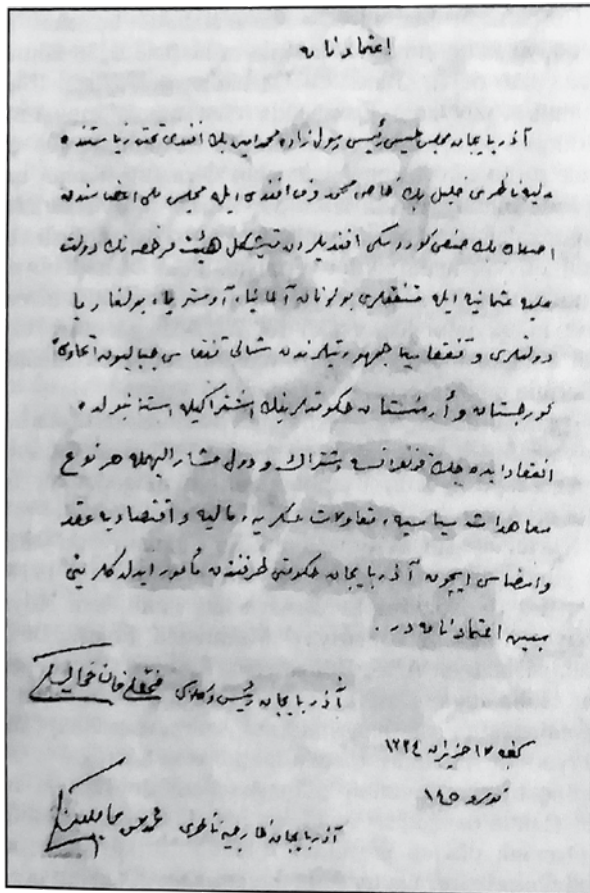 اعتمادنامه
آذربایجان مجلس ملیسی رئیسی رسول زاده محمد امین بك افندی تحت ریاستنده
عدلیه ناظری خلیل بك خاص محمدوف افندی ایله مجلس ملی اعضاسندن
اصلان بك صفی کوردسکی افندیلردن متشکل هیئت مرخصه نك دولت
علیه عثمانیه ایله متفقلری بولونان آلمانیا، آوستریا، بولغاریا
دولتلری و قفقاسیا جمهوریتلرندن شمالی قفقاس جبلیون اتحادی
کورجستان و أرمنستان حکومتلرینك اشتراکیله استانبولده
انعقاد ایده جك قونفرانسه اشتراك و دول مشار الیهمله هر نوع
معاهدات سیاسیه، مقاولات عسکریه، مالیه و اقتصادیه عقد
وامضاسی ایچون آذربایجان حکومتی طرفندن مأمور ایدلدکلرینی
مبین اعتمادنامه در.
آذربایجان رئیس وکلاسی فتحعلی خان خویسکی
کنجه ١٧ حزیران ١٣٣٤
نومرو ١٤٥
آذربایجان خارجیه ناظری محمد حسن حاجینسکی